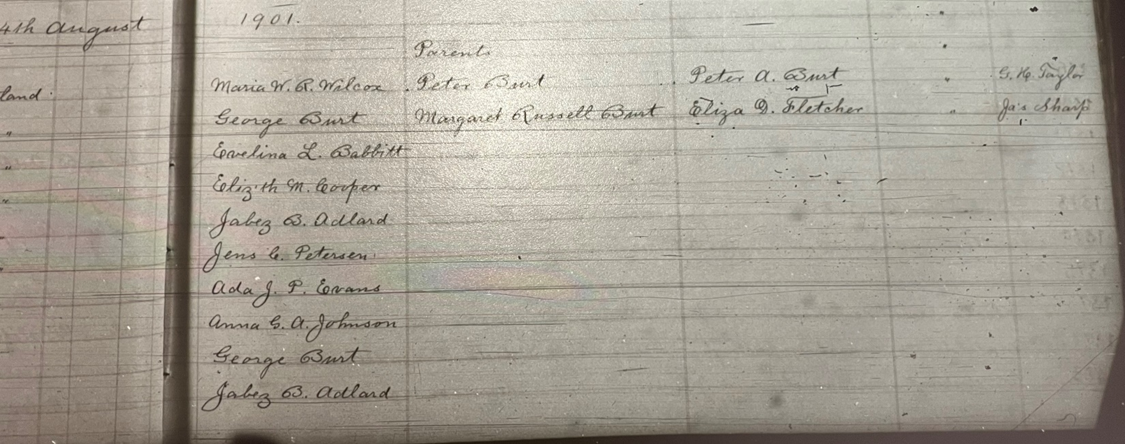 4th August 1901.
Parents
Maria W. R. Wilcox Peter Burt Peter A. Burt " G. H. Taylor
land. George Burt Margaret Russell Burt Eliza D. Fletcher " Jas Sharp
" Evelina L. Babbitt
" Elizth M. Cooper
Jabez B. Adlard
Jens C. Petersen
Ada J. P. Evans
Anna G. A. Johnson
George Burt
Jabez B. Adlard